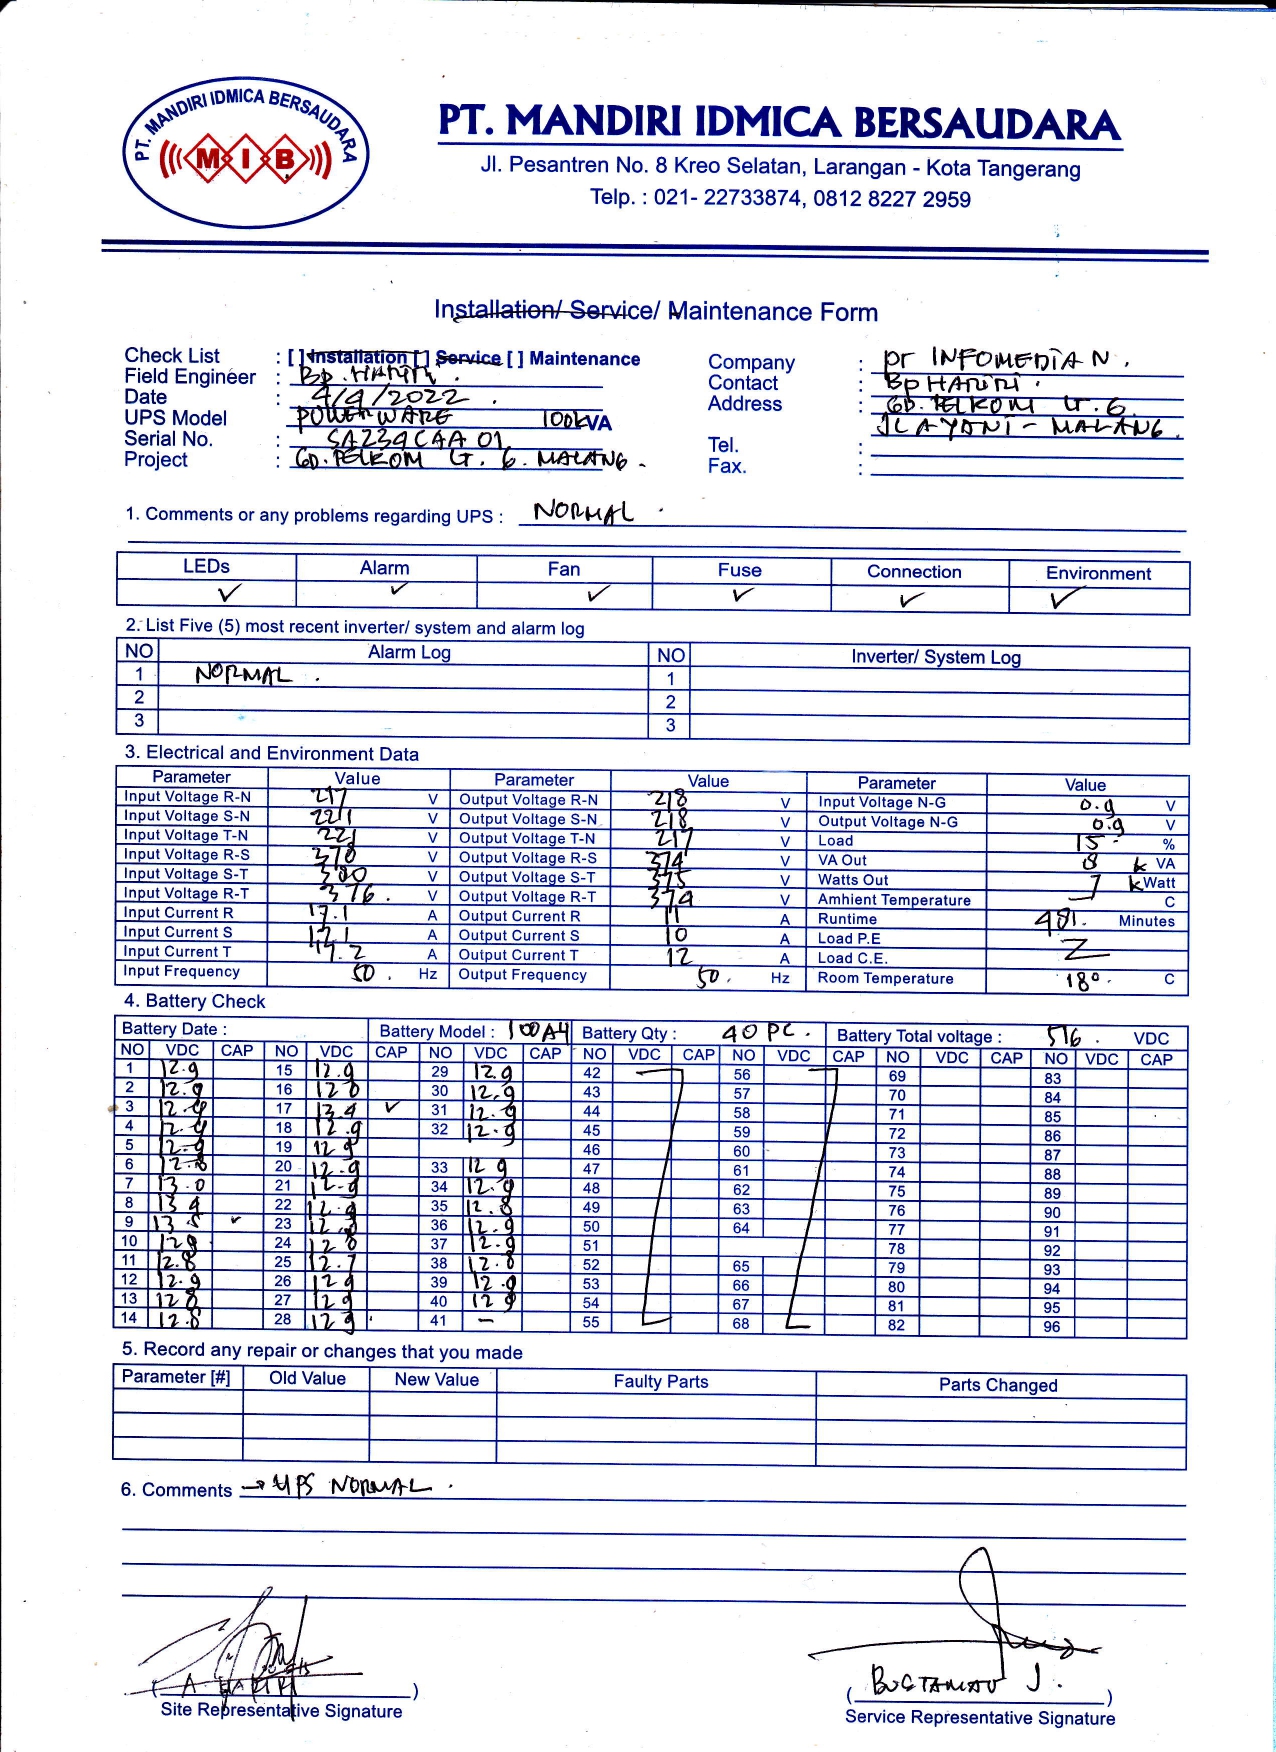 PT. MANDIRI IDMICA BERSAUDARA
MIB
PT. MANDIRI IDMICA BERSAUDARA
Jl. Pesantren No. 8 Kreo Selatan, Larangan - Kota Tangerang
Telp. : 021- 22733874, 0812 8227 2959
Installation/ Service/ Maintenance Form
Check List : [ ] Installation [ ] Service [ ] Maintenance
Field Engineer : Bp. HARIRI.
Date : 4/9/2022.
UPS Model : POWERWARE 100kVA
Serial No. : SA239CAA 01
Project : GD. TELKOM LT. 6. MALANG.
Company : PT INFOMEDIA N.
Contact : Bp HARIRI.
Address : GD. TELKOM LT. 6
JL A YANI - MALANG.
Tel. :
Fax. :
1. Comments or any problems regarding UPS : NORMAL.
LEDs Alarm Fan Fuse Connection Environment
✓ ✓ ✓ ✓ ✓ ✓
2. List Five (5) most recent inverter/ system and alarm log
NO Alarm Log NO Inverter/ System Log
1 NORMAL. 1
2 2
3 3
3. Electrical and Environment Data
Parameter Value Parameter Value Parameter Value
Input Voltage R-N 217 V Output Voltage R-N 218 V Input Voltage N-G 0.9 V
Input Voltage S-N 221 V Output Voltage S-N 218 V Output Voltage N-G 0.9 V
Input Voltage T-N 221 V Output Voltage T-N 217 V Load 15 %
Input Voltage R-S 378 V Output Voltage R-S 374 V VA Out 8 k VA
Input Voltage S-T 380 V Output Voltage S-T 375 V Watts Out 7 k Watt
Input Voltage R-T 376. V Output Voltage R-T 374 V Amhient Temperature C
Input Current R 17.1 A Output Current R 11 A Runtime Minutes
Input Current S 17.1 A Output Current S 10 A Load P.E
Input Current T 17.2 A Output Current T 12 A Load C.E.
Input Frequency 50. Hz Output Frequency 50. Hz Room Temperature 18°. C
4. Battery Check
Battery Date : Battery Model : 100AH Battery Qty : 40 PC. Battery Total voltage : 516. VDC
NO VDC CAP NO VDC CAP NO VDC CAP NO VDC CAP NO VDC CAP NO VDC CAP NO VDC CAP
1 12.9 15 12.9 29 12.9 42 56 69 83
2 12.9 16 12.8 30 12.9 43 57 70 84
3 12.9 17 13.4 ✓ 31 12.9 44 58 71 85
4 12.9 18 12.9 32 12.9 45 59 72 86
5 12.9 19 12 9 46 60 73 87
6 12.8 20 12.9 33 12 9 47 61 74 88
7 13.0 21 12.9 34 12.9 48 62 75 89
8 13 4 22 12.9 35 12.8 49 63 76 90
9 13.5 ✓ 23 12.8 36 12.9 50 64 77 91
10 129 24 12 8 37 12.9 51 78 92
11 12.8 25 12.7 38 12.8 52 65 79 93
12 12.9 26 12 9 39 12.9 53 66 80 94
13 12 8 27 12 9 40 12 9 54 67 81 95
14 12.8 28 12 9 41 - 55 68 82 96
5. Record any repair or changes that you made
Parameter [#] Old Value New Value Faulty Parts Parts Changed
6. Comments → UPS NORMAL.
( A HARIRI )
Site Representative Signature
( BUSTAMAN J. )
Service Representative Signature